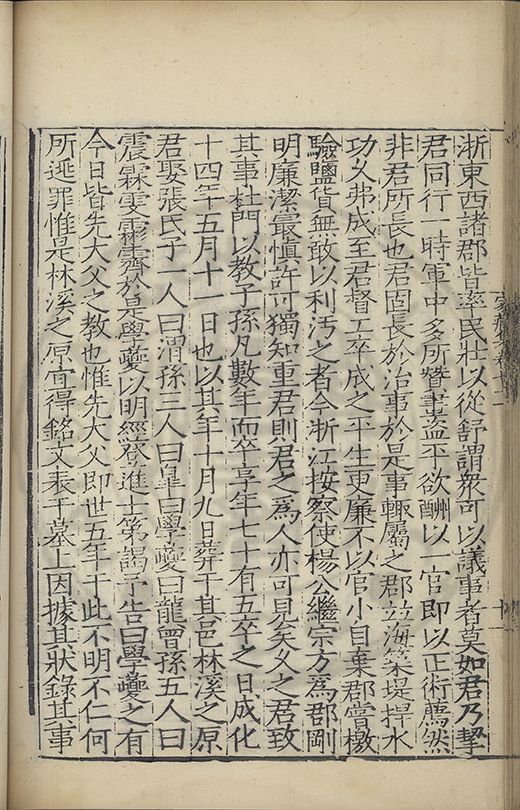 浙東西諸郡皆率民壯以從舒謂衆可以議事者莫如君乃挈
君同行一時軍中多所贊畫盗平欲酬以一官即以正術薦然
非君所長也君固長於治事於是事輙屬之郡並海築堤捍水
功久弗成至君督工卒成之平生吏廉不以官小自棄郡嘗檄
驗鹽貨無敢以利汚之者今浙江按察使楊公繼宗方爲郡剛
明廉潔最慎許可獨知重君則君之爲人亦可見矣久之君致
其事杜門以教子孫凡數年而卒享年七十有五卒之日成化
十四年五月十一日也以其年十月九日葬于其邑林溪之原
君娶張氏子一人曰渭孫三人曰皐曰學夔曰龍曾孫五人曰
震霖雯霦霽於是學夔以明經登進士第謁予告曰學夔之有
今日皆先大父之教也惟先大父即世五年于此不明不仁何
所逃罪惟是林溪之原宜得銘文表于墓上因據其狀錄其事